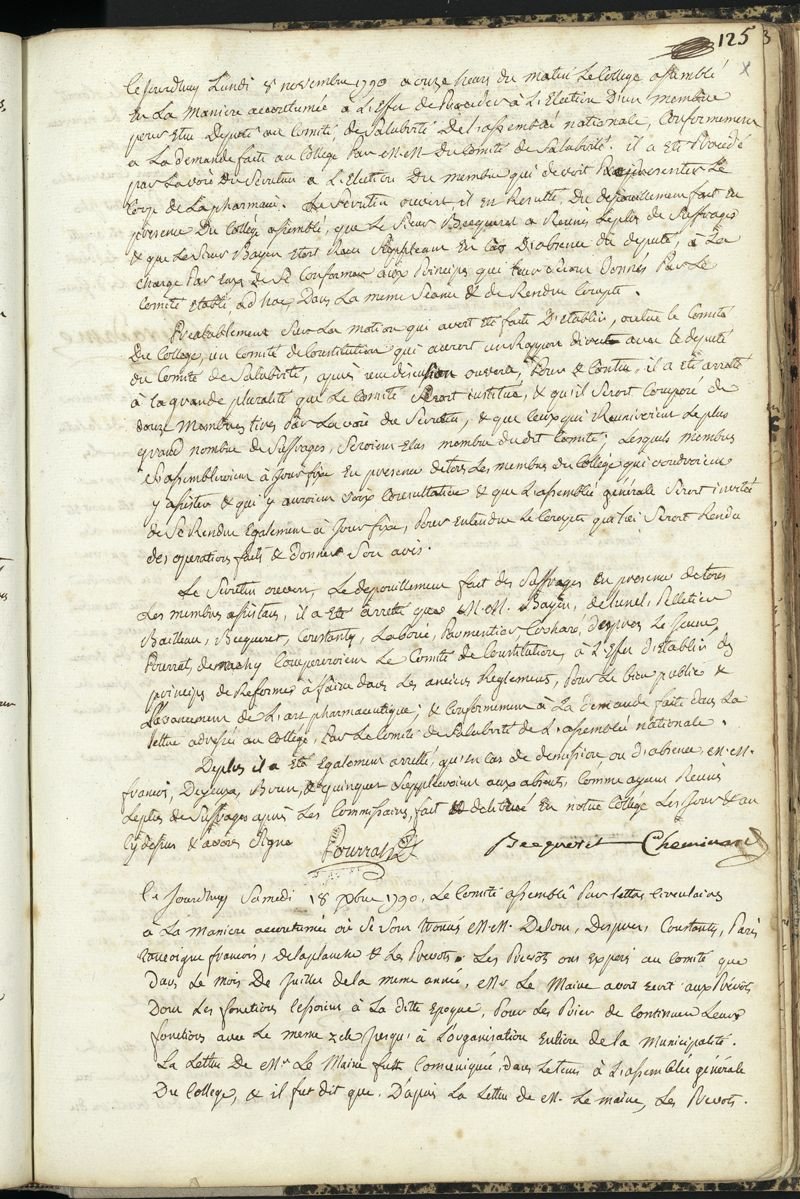 125
Ce jourdhuy Lundi 8 novembre 1790 a onze heures du matin Le College assemblé
En La Maniere accoutumée a L'Effet de Proceder à L'Election D'un membre
pour Etre Deputé au Comité de Salubrité De L'assemblée nationale, Conformement
a La demande faite au College Par M.M. Du Comité de Salubrité. il a Eté Procédé
par La voie du Scrutin a L'Election Du membre qui devoit Representer Le
Corps de La pharmacie. Le scrutin ouvert il En Resulte, Du depouillement fait En
presence Du College assemblé, que Le Sieur Becqueret a Reuni Le plus de Suffrages
& que Le Sieur Bayen Etoit Suppleant En Cas D'absence du deputé, à La
charge Par Eux de Se Conformer aux Principes qui Leur seront Donnés Par Le
Comité Etabli ad hac, Dans La meme Seance & de Rendre Compte.
Prealablement Sur La motion qui avoit Eté faite D'Etablir, outre Le Comité
Du College, un Comité de Constitution qui auroit un Rapport direct avec Le deputé
du Comité de Salubrité, après une discussion ouverte, Pour & Contre, il a Eté arreté
à la grande pluralité que Le Comité Seroit institué, & qu'il Seroit Composé de
douze Membres tirés Par La voie du Scrutin, & que Ceux qui Reuniroient Le plus
grand nombre de Suffrages, Seroient Elus membres du dit Comité; Lesquels membres
S'assembleroient à Jour fixe En presence de tous Les membres du College qui voudroient
y assister & qui y auroient voix Consultative & que L'assemblée générale Seroit invitée
de Se Rendre Egalement à Jour fixe, Pour Entendre Le Compte qui Lui Seroit Rendu
des operations faites & Donner Son avis.
Le Scrutin ouvert, Le depouillement fait des Suffrages En presence de tous
Les membres assistans, il a Eté arreté que M.M. Bayen, delunel, Pelletier
Bailleau, Becqueret, Constanty, Laborie, Parmentier, Cozhard, despives Le Jeune,
Pourrat, demachy Composeroient Le Comité de Constitution, à L'Effet d'Etablir des
principes de Reformes à faire dans Les anciens Reglemens, Pour Le bien public &
L'avancement de L'art pharmaceutique, & Conformement à La demande faite dans La
lettre adressée au College, Par Le Comité de Salubrité de L'assemblée nationale.
De plus il a Eté Egalement arreté, qu'En Cas de demission ou d'absence, M.M.
francois, Deyeux, Brun, & quinquet Suppleroient aux absents, Comme ayant Reuni
Le plus de Suffrages après Les Commissaires, fait & deliberé En notre College Les Jour & an
Cy dessus & avons Signé Pourrat Becqueret Cheminard
Ce Jourdhuy Samedi 18 xbre 1790, Le Comité assemblé Par lettres Circulaires
a La Maniere accoutumée où Se Sont trouvés M.M. Delon, Despives, Constanty, Paris
francois, delaplanche & Les Prevots. Les Prevots ont Exposé au Comité que
Dans Le mois De Juillet de la meme année, Mr Le Maire avoit Ecrit aux Prévots
Dont Les fonctions Cessoient à La Ditte Epoque, Pour Les Prier de Continuer Leurs
fonctions avec Le meme zele Jusqu'à L'organisation Entiere de la Municipalité.
La Lettre De Mr Le Maire fut Comuniquée, dans Le tems à L'assemblée générale
Du College, & il fut dit que D'après La Lettre de M. Le maire, Les Prevots.